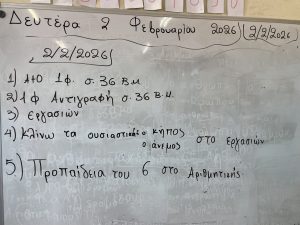 Δευτέρα 2 Φεβρουαρίου 2026) (2/2/2026)
, 2/2/2026)
1) Α+Ο 1φ. σ. 36 Β.Μ
2) 1φ Αντιγραφή σ. 36 Β.Μ.
3) εργασιών
4) Κλίνω τα ουσιαστικά ο κήπος
ο άνεμος στο εργασιών
5) Προπαίδεια του 6 στο Αριθμητικής